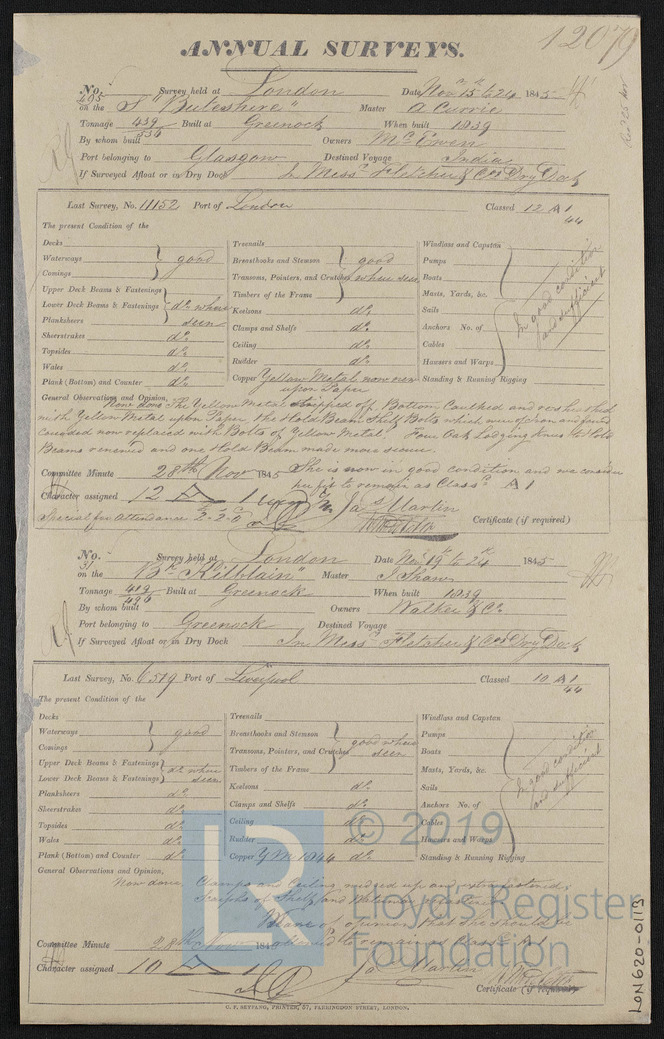 12079
ANNUAL SURVEYS.
No. 405 Survey held at London Date Nov 15th to 24 1845
on the S "Buteshire" Master A Currie
Tonnage 439 534 Built at Greenock When built 1839
By whom built Owners McEwen
Port belonging to Glasgow Destined Voyage India
If Surveyed Afloat or in Dry Dock In Messrs Fletcher & Cos Dry Dock
Last Survey, No. 11152 Port of London Classed 12 A1 44
The present Condition of the
Decks
Waterways good
Comings
Upper Deck Beams & Fastenings
Lower Deck Beams & Fastenings do where seen
Planksheers
Sheerstrakes do
Topsides do
Wales do
Plank (Bottom) and Counter do
Treenails
Breasthooks and Stemson good
Transoms, Pointers, and Crutches where seen
Timbers of the Frame
Keelsons do
Clamps and Shelfs do
Ceiling do
Rudder do
Copper Yellow Metal now over upon Paper
Windlass and Capstan
Pumps
Boats
Masts, Yards, &c.
Sails
Anchors No. of
Cables
Hausers and Warps
Standing & Running Rigging
In good condition and sufficient
General Observations and Opinion,
Now done The Yellow Metal stripped off Bottom Caulked and resheathed
with Yellow Metal upon Paper the Hold Beam Shelf Bolts which were of iron and found
corroded now replaced with Bolts of Yellow Metal. Four Oak Lodging Knees to Hold
Beams renewed and one Hold Beam made more secure.
She is now in good condition and we consider
her fit to remain as Classd A1
Committee Minute 28th Nov 1845
Character assigned 12 A 1
Jas Martin
Special fee Attendance 2-2-0
Certificate (if required)
No. 31 Survey held at London Date Nov 19th to 24th 1845
on the Bk "Kilblain" Master J Shaw
Tonnage 412 496 Built at Greenock When built 1839
By whom built Owners Walker & Co
Port belonging to Greenock Destined Voyage
If Surveyed Afloat or in Dry Dock In Messrs Fletcher & Cos Dry Dock
Last Survey, No. 6579 Port of Liverpool Classed 10 A1 44
The present Condition of the
Decks
Waterways good
Comings
Upper Deck Beams & Fastenings
Lower Deck Beams & Fastenings do where seen
Planksheers do
Sheerstrakes do
Topsides do
Wales do
Plank (Bottom) and Counter do
Treenails
Breasthooks and Stemson
Transoms, Pointers, and Crutches good where seen
Timbers of the Frame
Keelsons do
Clamps and Shelfs do
Ceiling do
Rudder do
Copper YM 1844 do
Windlass and Capstan
Pumps
Boats
Masts, Yards, &c.
Sails
Anchors No. of
Cables
Hausers and Warps
Standing & Running Rigging
In good condition and sufficient
General Observations and Opinion,
Now done, Clamps and Ceiling wedged up and extra fastened,
Scarphs of Shelf and
We are of opinion that she should be
allowed to remain as Classd A1
Committee Minute 28th Nov 1845
Character assigned 10 A 1
Jas Martin
Certificate (if required)
C. F. SEYFANG, PRINTER, 57, FARRINGDON STREET, LONDON.
LON620-0113
© 2019
Lloyd's Register
Foundation